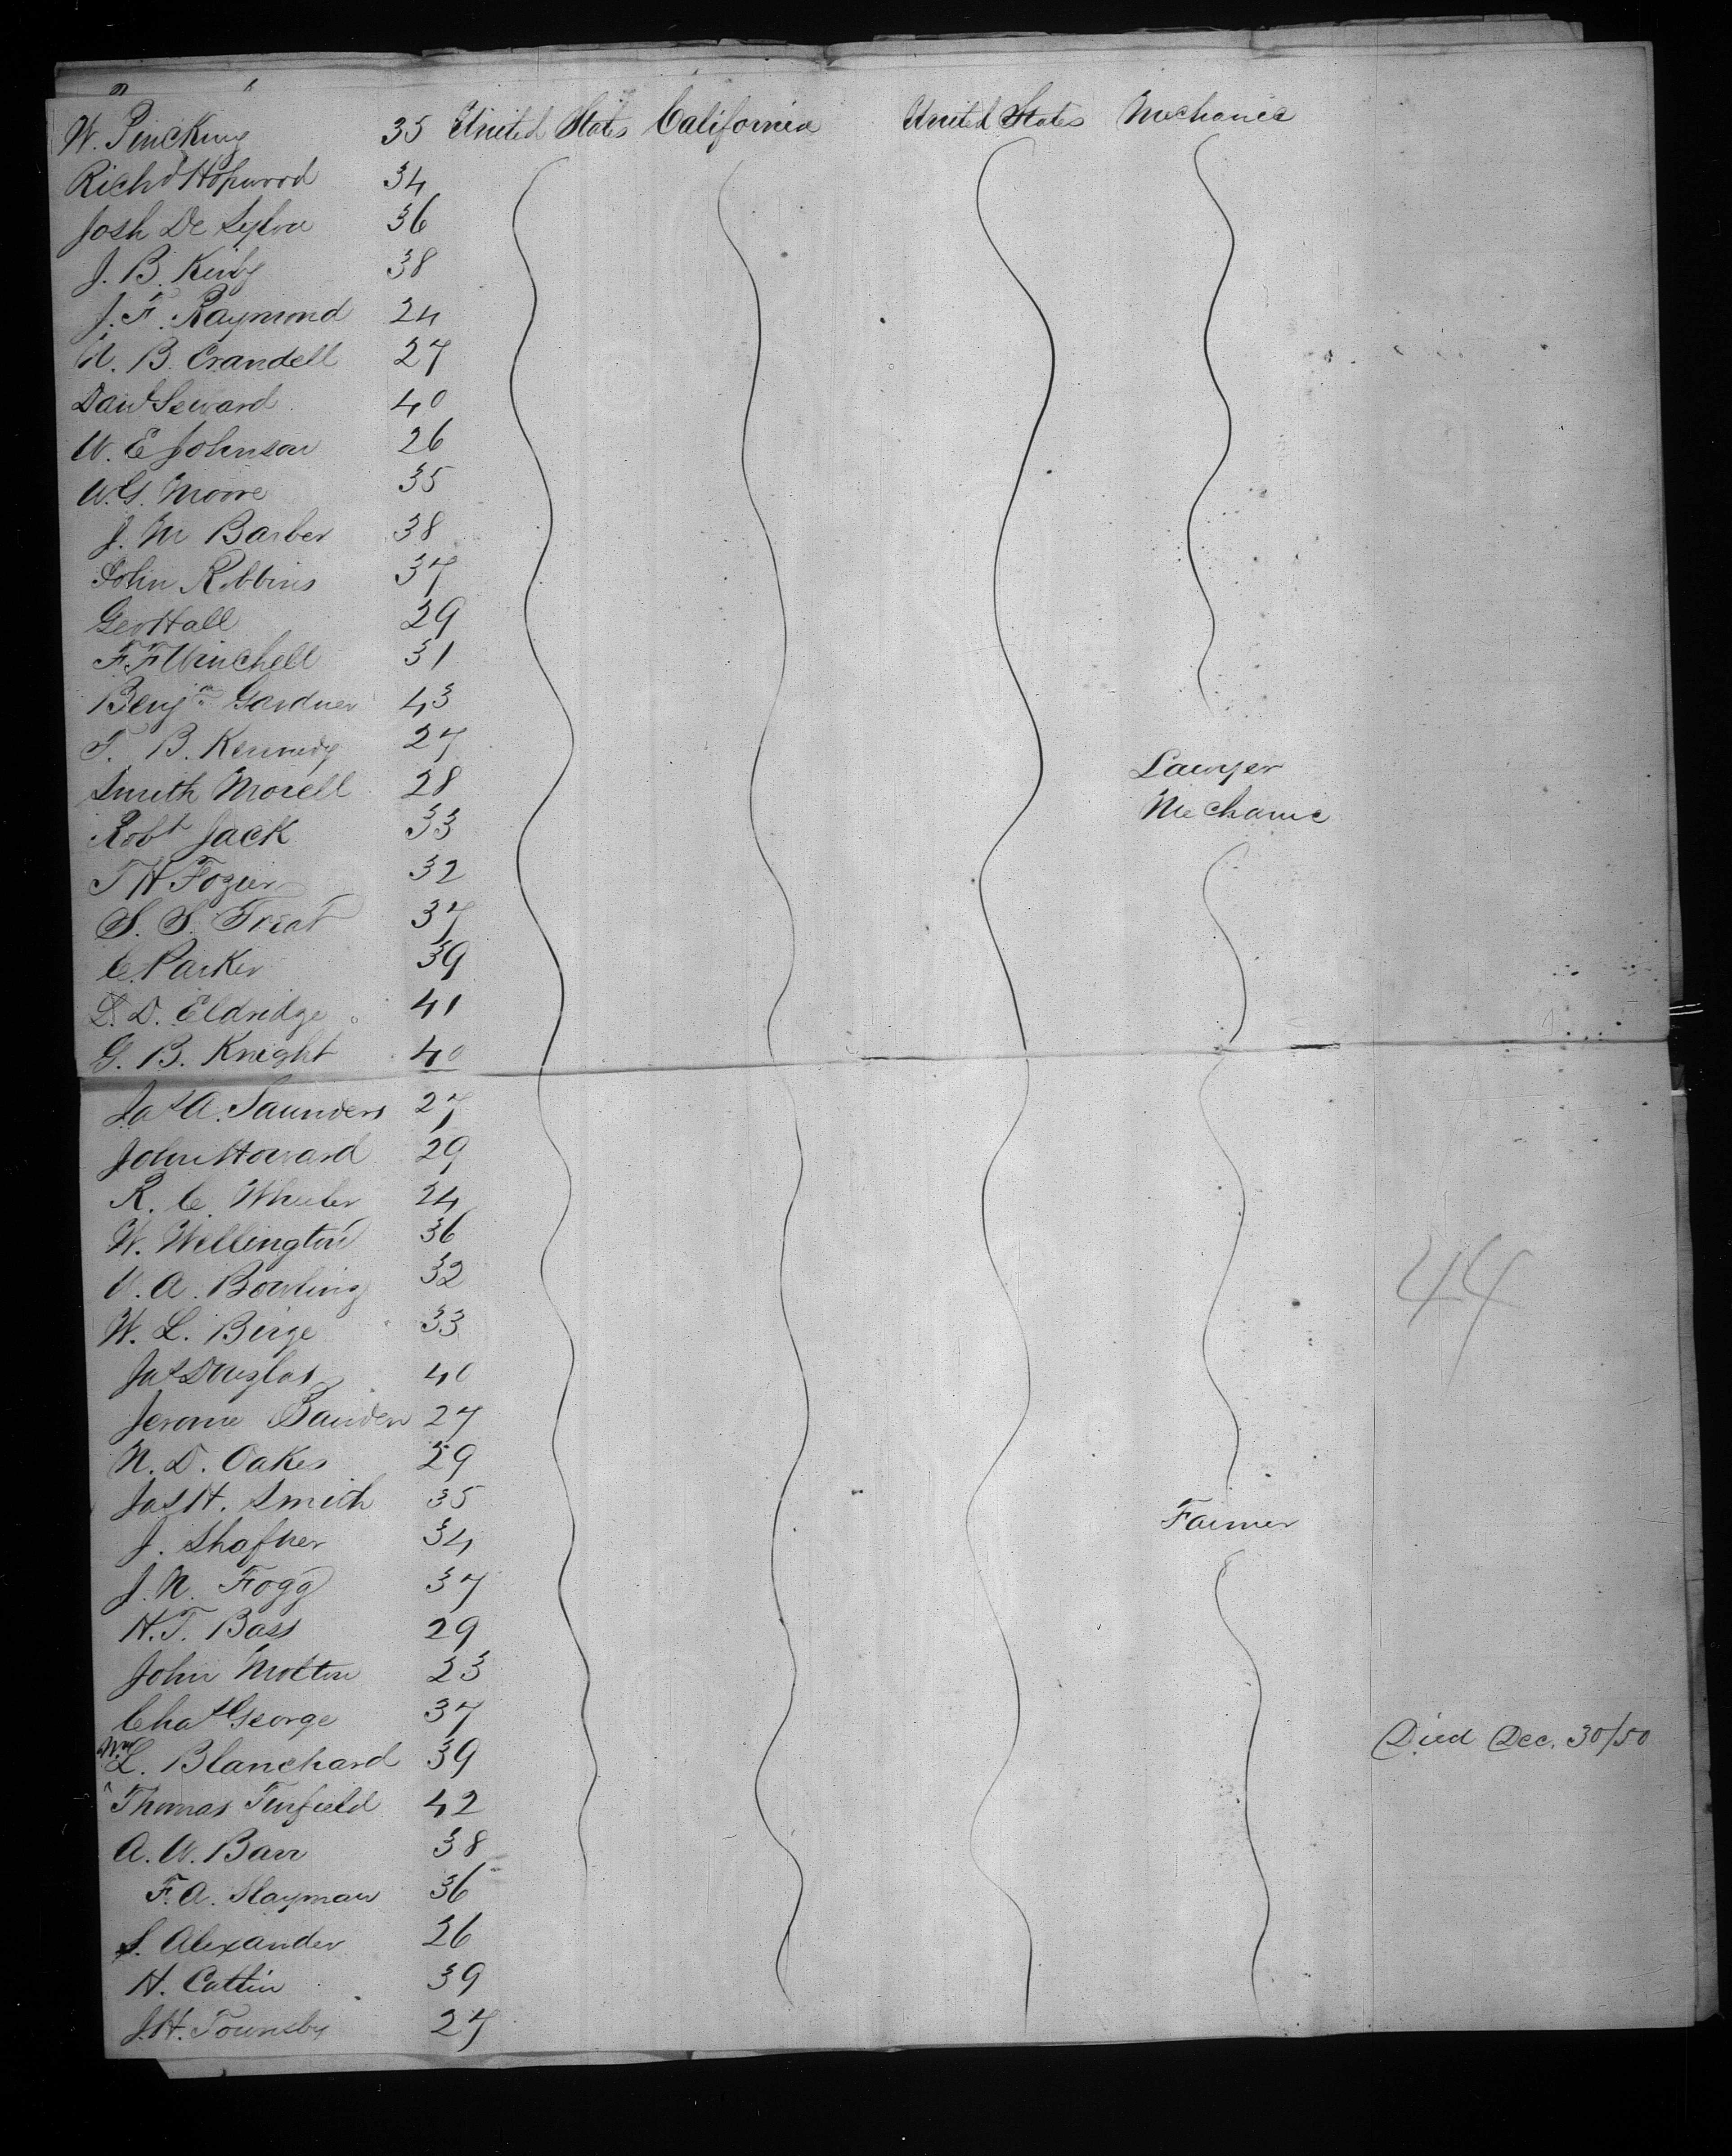 W. Pinckney 35 United States California United States Mechanic
Richd Hopwood 34
Josh De Sylva 36
J. B. Kirby 38
J. F. Raymond 24
B. Crandell 27
Davd Seward 40
W. E Johnson 26
W. G. Moore 35
J. M Barber 38
John Robbins 37
Geo Hall 29
F. F Winchell 31
Benjn Gardner 43
T. B. Kennedy 27
Smith Morell 28 Lawyer
Robt Jack 33 Mechanic
T H Fozier 32
S. S. Treat 37
C. Parker 39
D. Eldridge 41
G. B. Knight 40
Jas A. Saunders 27
John Howard 29
R. C. Wheeler 24
W. Wellington 36
A. Bowling 32
W. L. Birge 33
Jas Douglas 40
Jerome 27
N. D. Oakes 29
Jas H. Smith 35 Farmer
J. Shafner 34
J. N. Fogg 37
H. T. Bass 29
John Molton 23
Chas George 37
Wm L. Blanchard 39 Died Dec. 30/50
Thomas Tinfield 42
A. W. Barr 38
F. A. Slayman 36
S. Alexander 26
H. Catlin 39
J. H. Townsby 27
44